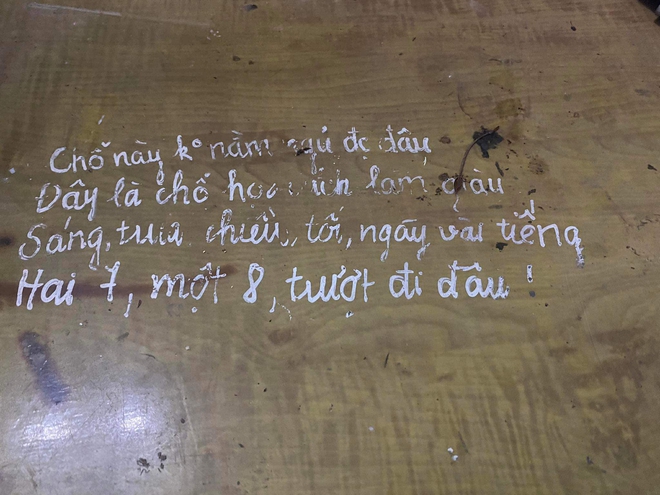 Chỗ này k° nằm ngủ đc đâu
Đây là chỗ học làm giàu
Sáng, trưa, chiều, tối, ngày vài tiếng
Hai 7, một 8, trượt đi đâu!